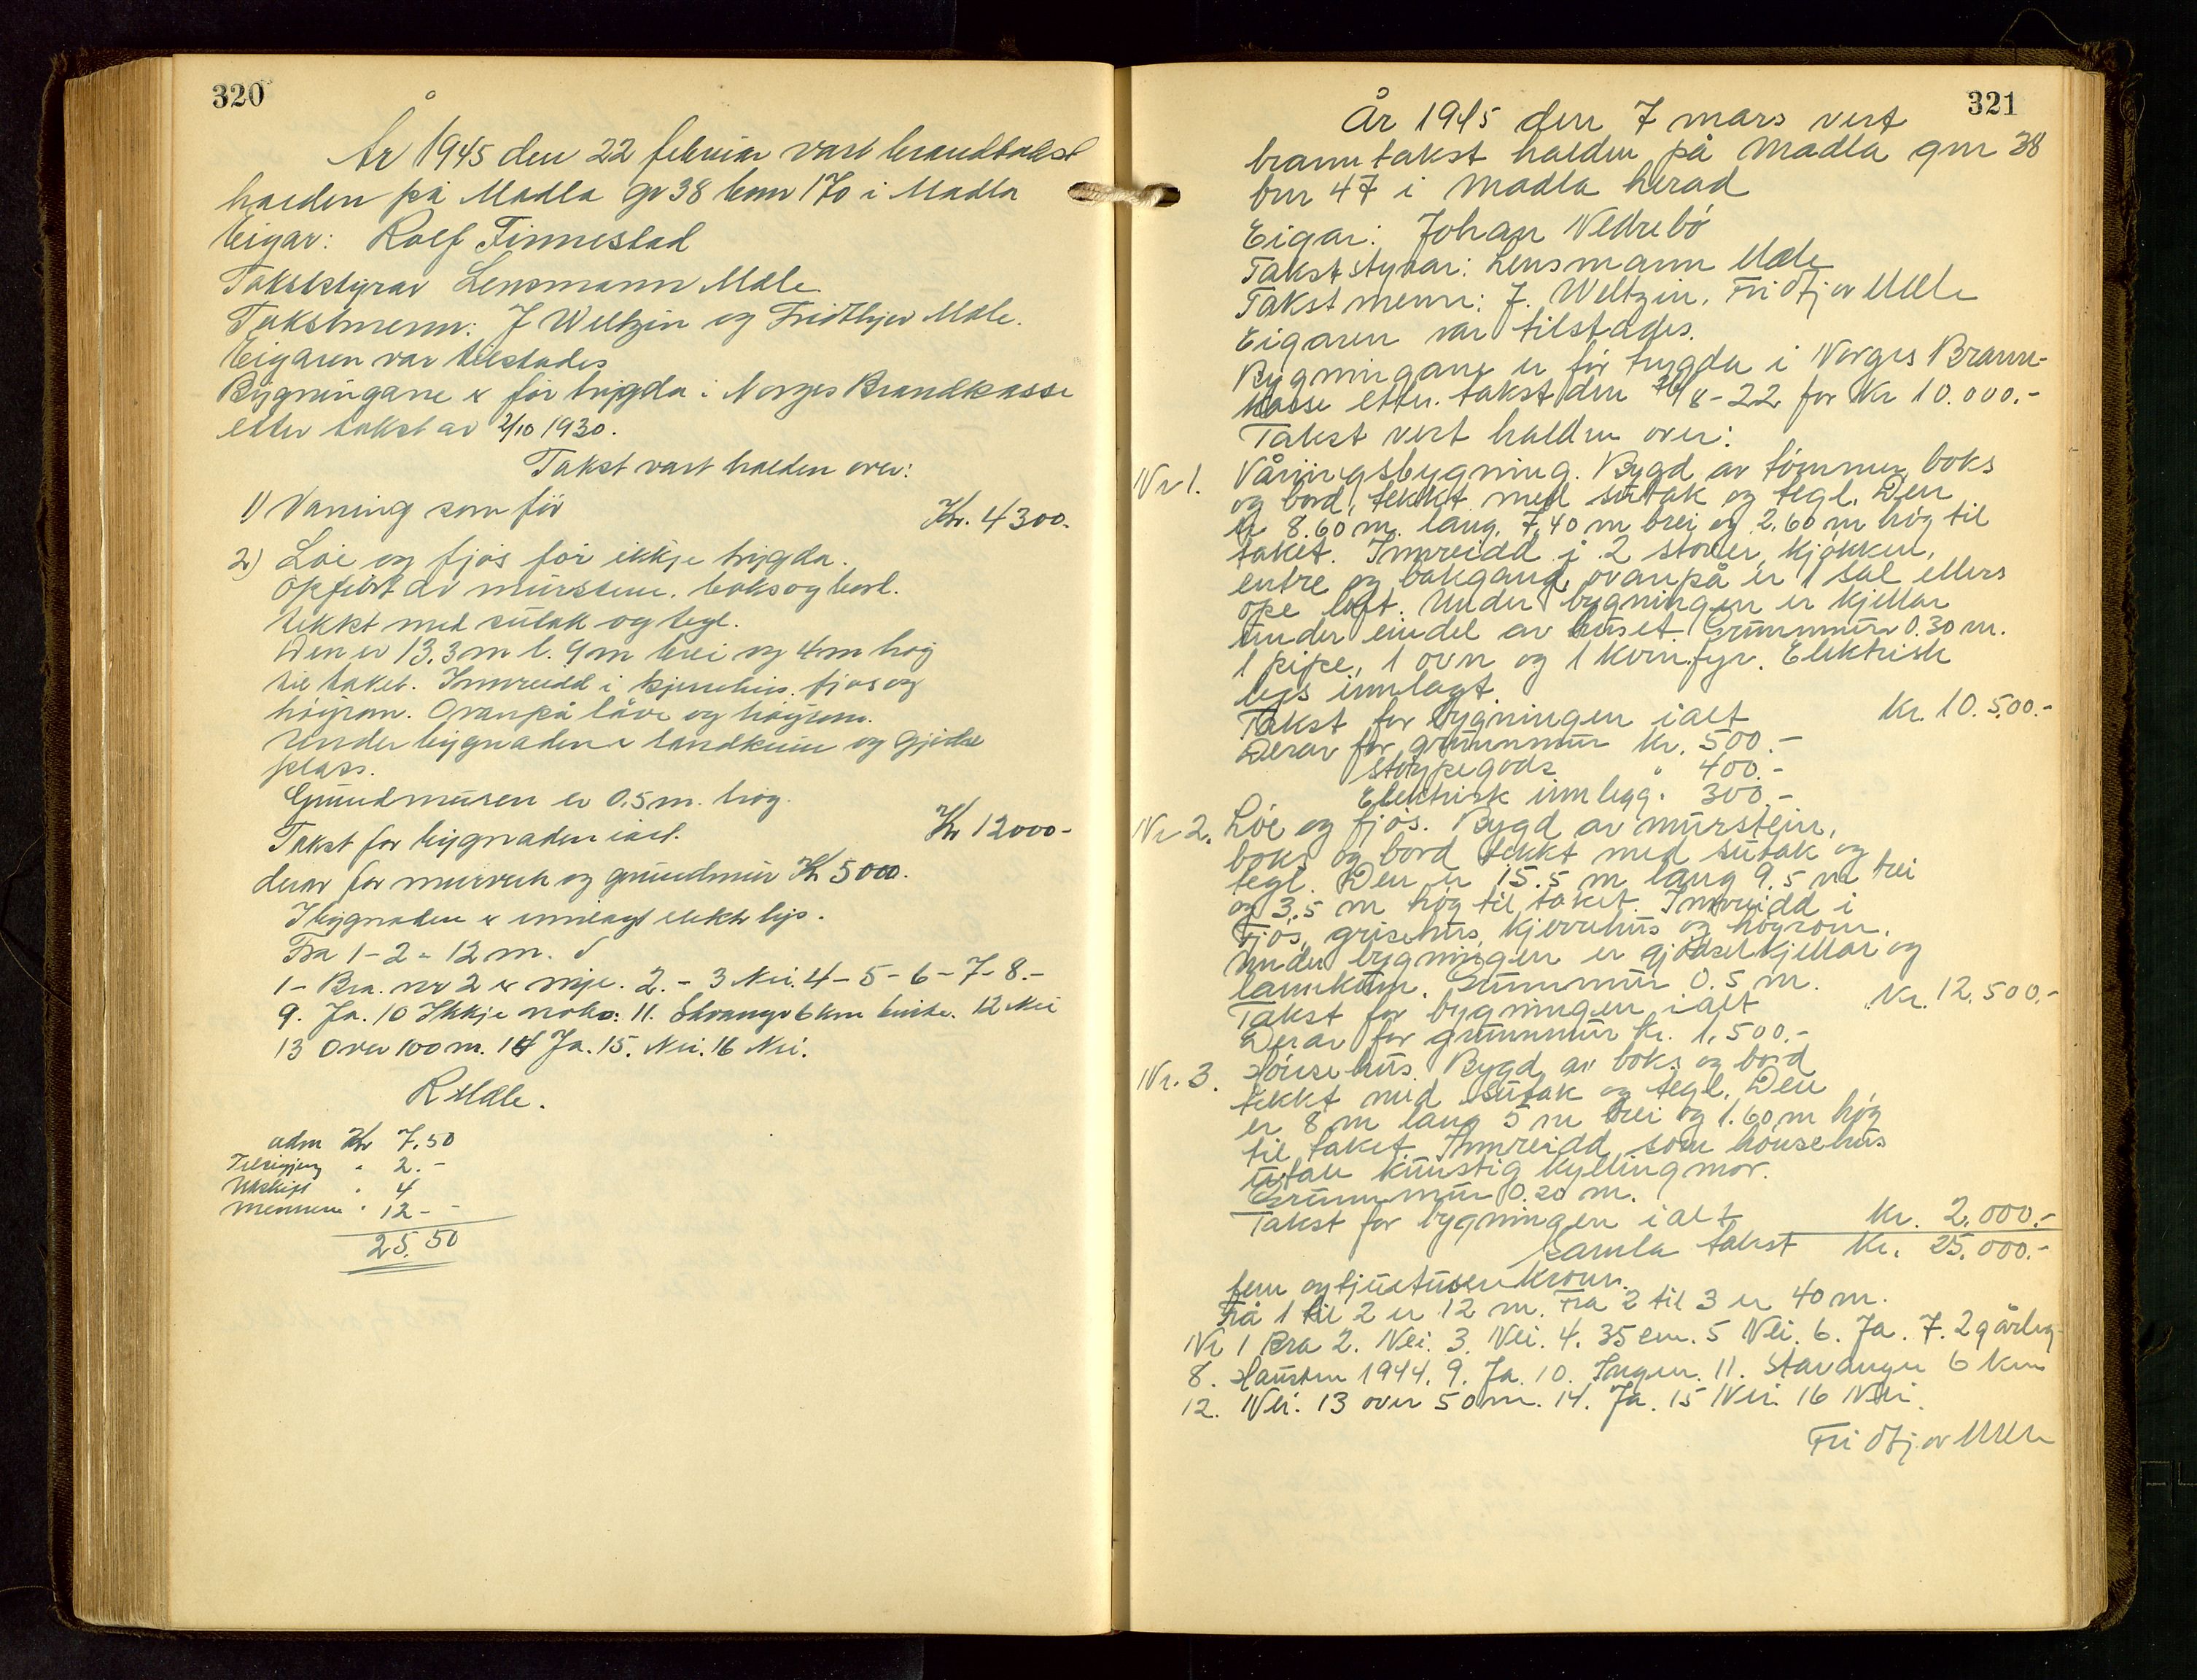 320
År 1945 den 22 februar vart brandtakst
halden på Madla gr 38 bnr 170 i Madla
Eigar: Rolf Finnestad
Takststyrar Lensmann Mæle
Takstmenn: J Weltzin og Fridthjov Mæle.
Eigaren var tilstades
Bygningane er før trygda i Norges Brandkasse
etter takst av 2/10 1930.
Takst vart halden over:
1) Vaning som før Kr. 4300.
2) Löe og fjös för ikkje trygda.
Opfört av mursten, boks og bord.
tekkt med sutak og tegl.
Den er 13,3 m l. 9 m brei og 4 m høg
til taket. Innreidd i kjerrehus, fjös og
höyrom. Ovanpå låve og höyrom.
Under bygnaden er landkum og gjödsel
plass.
Grundmuren er 0,5 m. høg.
Takst for bygnaden ialt. Kr 12000-
derav for murverk og grundmur Kr 5000.
I bygnaden er innlagt elektr lys.
Fra 1-2 = 12 m.
1- Bra. nr 2 er nye. 2.- 3 Nei. 4-5-6-7-8.-
9. Ja. 10 Ikkje noko. 11. Stavanger 6 km 12 Nei
13 Over 100 m. 14 Ja. 15. Nei. 16 Nei.
R Mæle.
adm Kr 7,50
Tilsegjing " 2.-
Utskrift " 4
Mennene " 12--
25.50
321
År 1945 den 7 mars vert
branntakst halden på Madla gnr 38
bnr 47 i Madla herad
Eigar: Johan Vedrebö
Takststyrar: Lensmann Mæle
Takstmenn: J. Weltzin, Fridtjov Mæle
Eigaren var tilstades.
Bygningane er för trygda i Norges Brann-
kasse etter takst den /8-22 for Kr 10.000.-
Takst vert halden over:
Nr 1. Våningsbygning. Bygd av tömmer, boks
og bord, tekkt med sutak og tegl. Den
er 8.60 m. lang, 7,40 m brei og 2.60 m høg til
taket. Innreidd i 2 stover, kjökken,
entre og bakgang, ovanpå er 1 sal ellers
ope loft. Under bygningen er kjellar
under eindel av huset. Grunnmur 0.30 m.
1 pipe, 1 ovn og 1 komfyr. Elektrisk
lys innlagt.
Takst for bygningen ialt Kr. 10.500.-
Derav for grunnmur Kr. 500.-
Støypegods " 400.-
Elektrisk innlegg " 300.-
Nr 2. Löe og fjös. Bygd av murstein,
boks og bord tekkt med sutak og
tegl. Den er 15.5 m lang 9.5 m brei
og 3,5 m høg til taket. Innreidd i
fjös, grisehus, kjerrehus og höyrom.
Under bygningen er gjödselkjellar og
lannkum. Grunnmur 0.5 m.
Takst for bygningen ialt Kr. 12.500.-
Derav for grunnmur Kr. 1.500.-
Nr. 3. Hönsehus. Bygd av boks og bord
tekkt med sutak og tegl. Den
er 8 m lang 5 m brei og 1.60 m høg
til taket. Innreidd som hönsehus
utan kunstig kyllingmor.
Grunnmur 0.20 m.
Takst for bygningen ialt Kr. 2.000.-
Samla takst Kr. 25.000.-
fem og tjuetusen kroner.
Frå 1 til 2 er 12 m. Fra 2 til 3 er 40 m.
Nr 1 Bra 2. Nei. 3. Nei. 4. 35 cm. 5 Nei. 6. Ja. 7. 2 g årleg
8. Hausten 1944. 9. Ja. 10. Ingen. 11. Stavanger 6 km
12. Nei. 13 over 50 m. 14. Ja. 15 Nei. 16 Nei.
Fridtjov Mæle